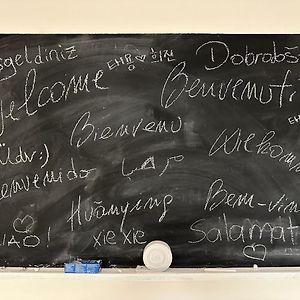 şgeldiniz
태용♡희진
Dobrodoš
elcome
Benvenuti
Bienvenu
Üdv:)
Wielkom
envenido
Huānyíng
Bem-vin
CIAO!
XIE XIE
Salamat